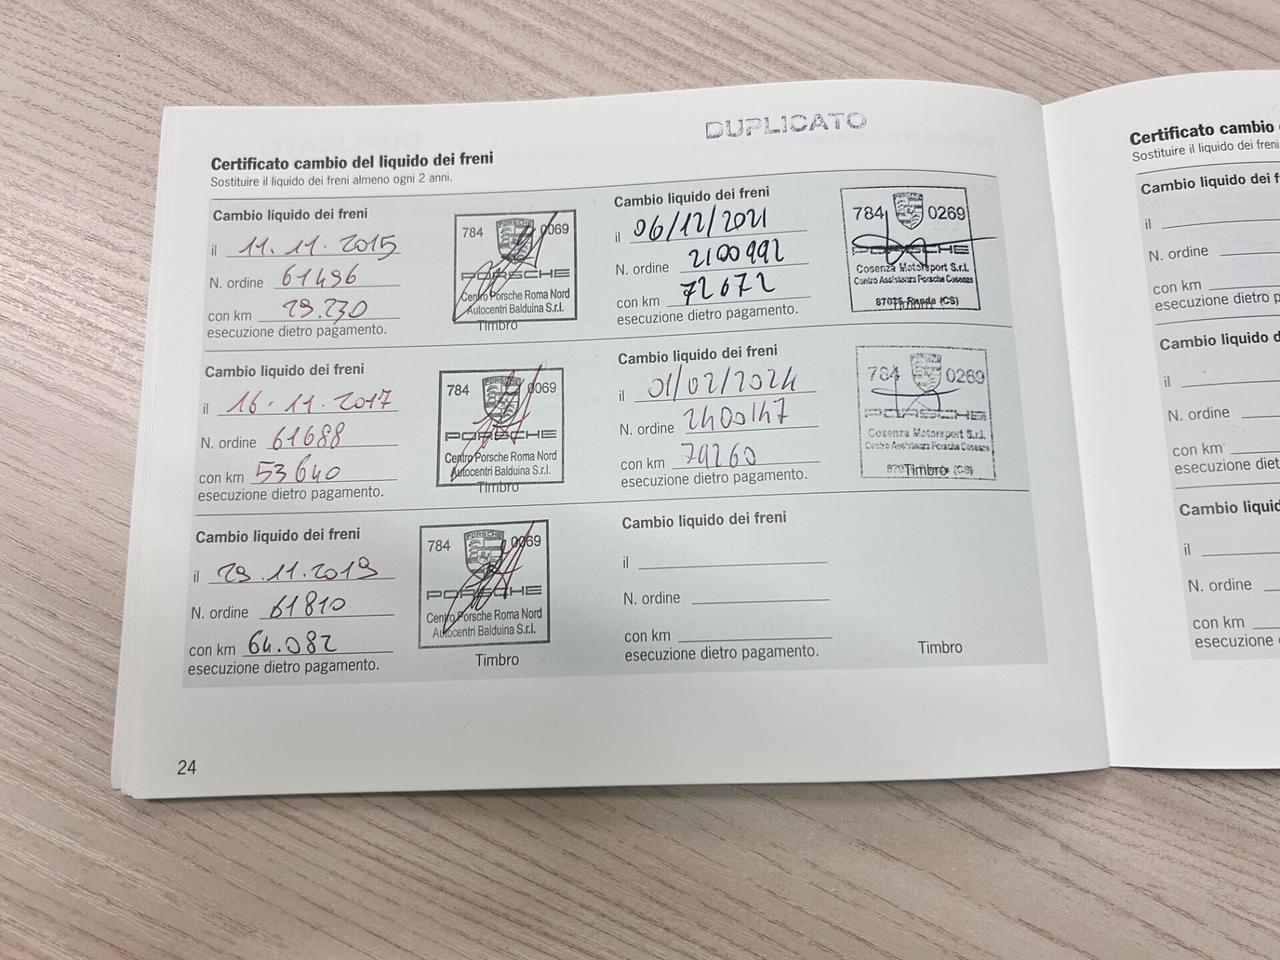 DUPLICATO
Certificato cambio del liquido dei freni
Sostituire il liquido dei freni almeno ogni 2 anni.
Cambio liquido dei freni
il 11.11.2015
N. ordine 61496
con km 29.230
esecuzione dietro pagamento.
784 0069
PORSCHE
Centro Porsche Roma Nord
Autocentri Balduina S.r.l.
Timbro
Cambio liquido dei freni
il 16.11.2017
N. ordine 61688
con km 53640
esecuzione dietro pagamento.
784 0069
PORSCHE
Centro Porsche Roma Nord
Autocentri Balduina S.r.l.
Timbro
Cambio liquido dei freni
il 29.11.2019
N. ordine 61810
con km 64.082
esecuzione dietro pagamento.
784 0069
PORSCHE
Centro Porsche Roma Nord
Autocentri Balduina S.r.l.
Timbro
Cambio liquido dei freni
il 06/12/2021
N. ordine 2100992
con km 72672
esecuzione dietro pagamento.
784 0269
PORSCHE
Cosenza Motorsport S.r.l.
Centro Assistenza Porsche Cosenza
87036 Rende (CS)
Timbro
Cambio liquido dei freni
il 01/02/2024
N. ordine 2400147
con km 79260
esecuzione dietro pagamento.
784 0269
PORSCHE
Cosenza Motorsport S.r.l.
Centro Assistenza Porsche Cosenza
Timbro (CS)
Cambio liquido dei freni
il
N. ordine
con km
esecuzione dietro pagamento.
Timbro
24
Certificato cambio
Sostituire il liquido dei freni
Cambio liquido dei
il
N. ordine
con km
esecuzione dietro
Cambio liquido
il
N. ordine
con km
esecuzione
Cambio
il
N. ordine
con km
esecuzione